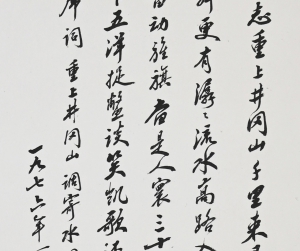 志重上井冈山千里来寻
更有潺〻流水高路入
动旌旗奋是人寰三十
五洋捉鳖谈笑凯歌还
席词重上井冈山调寄水
一九七六年